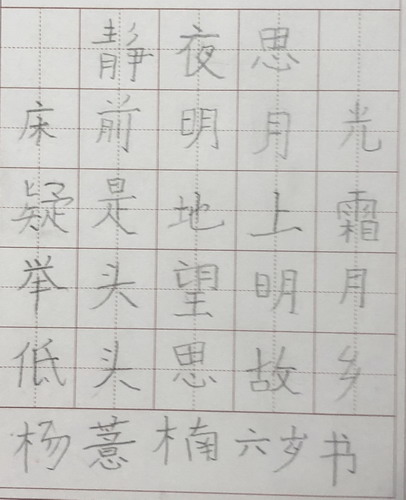 静夜思
床前明月光
疑是地上霜
举头望明月
低头思故乡
杨薏楠六岁书